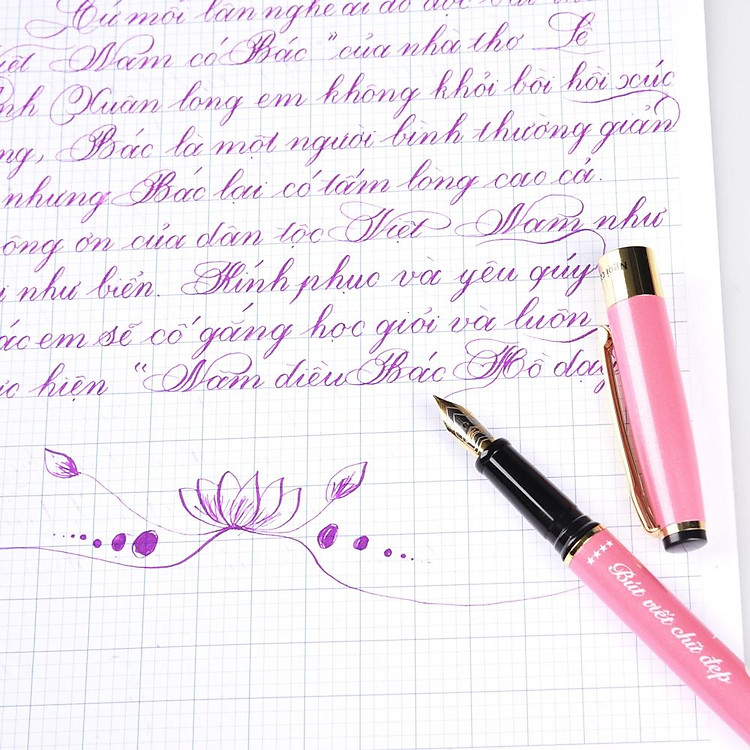 Cứ mỗi lần nghe ai đó đọc bài
Việt Nam có Bác" của nhà thơ Lê
Xuân lòng em không khỏi bồi hồi xúc
Bác là một người bình thường giản
nhưng Bác lại có tấm lòng cao cả.
ông ơn của dân tộc Việt Nam như
như biển. Kính phục và yêu quý
ác em sẽ cố gắng học giỏi và luôn
hiện "Năm điều Bác Hồ dạy
Bút viết chữ đẹp